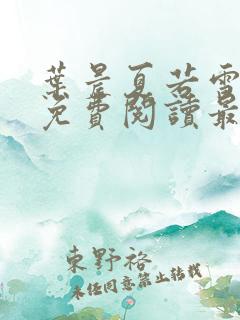 葉景夏若雪
免費閱讀最
東野裕
未经同意禁止转载